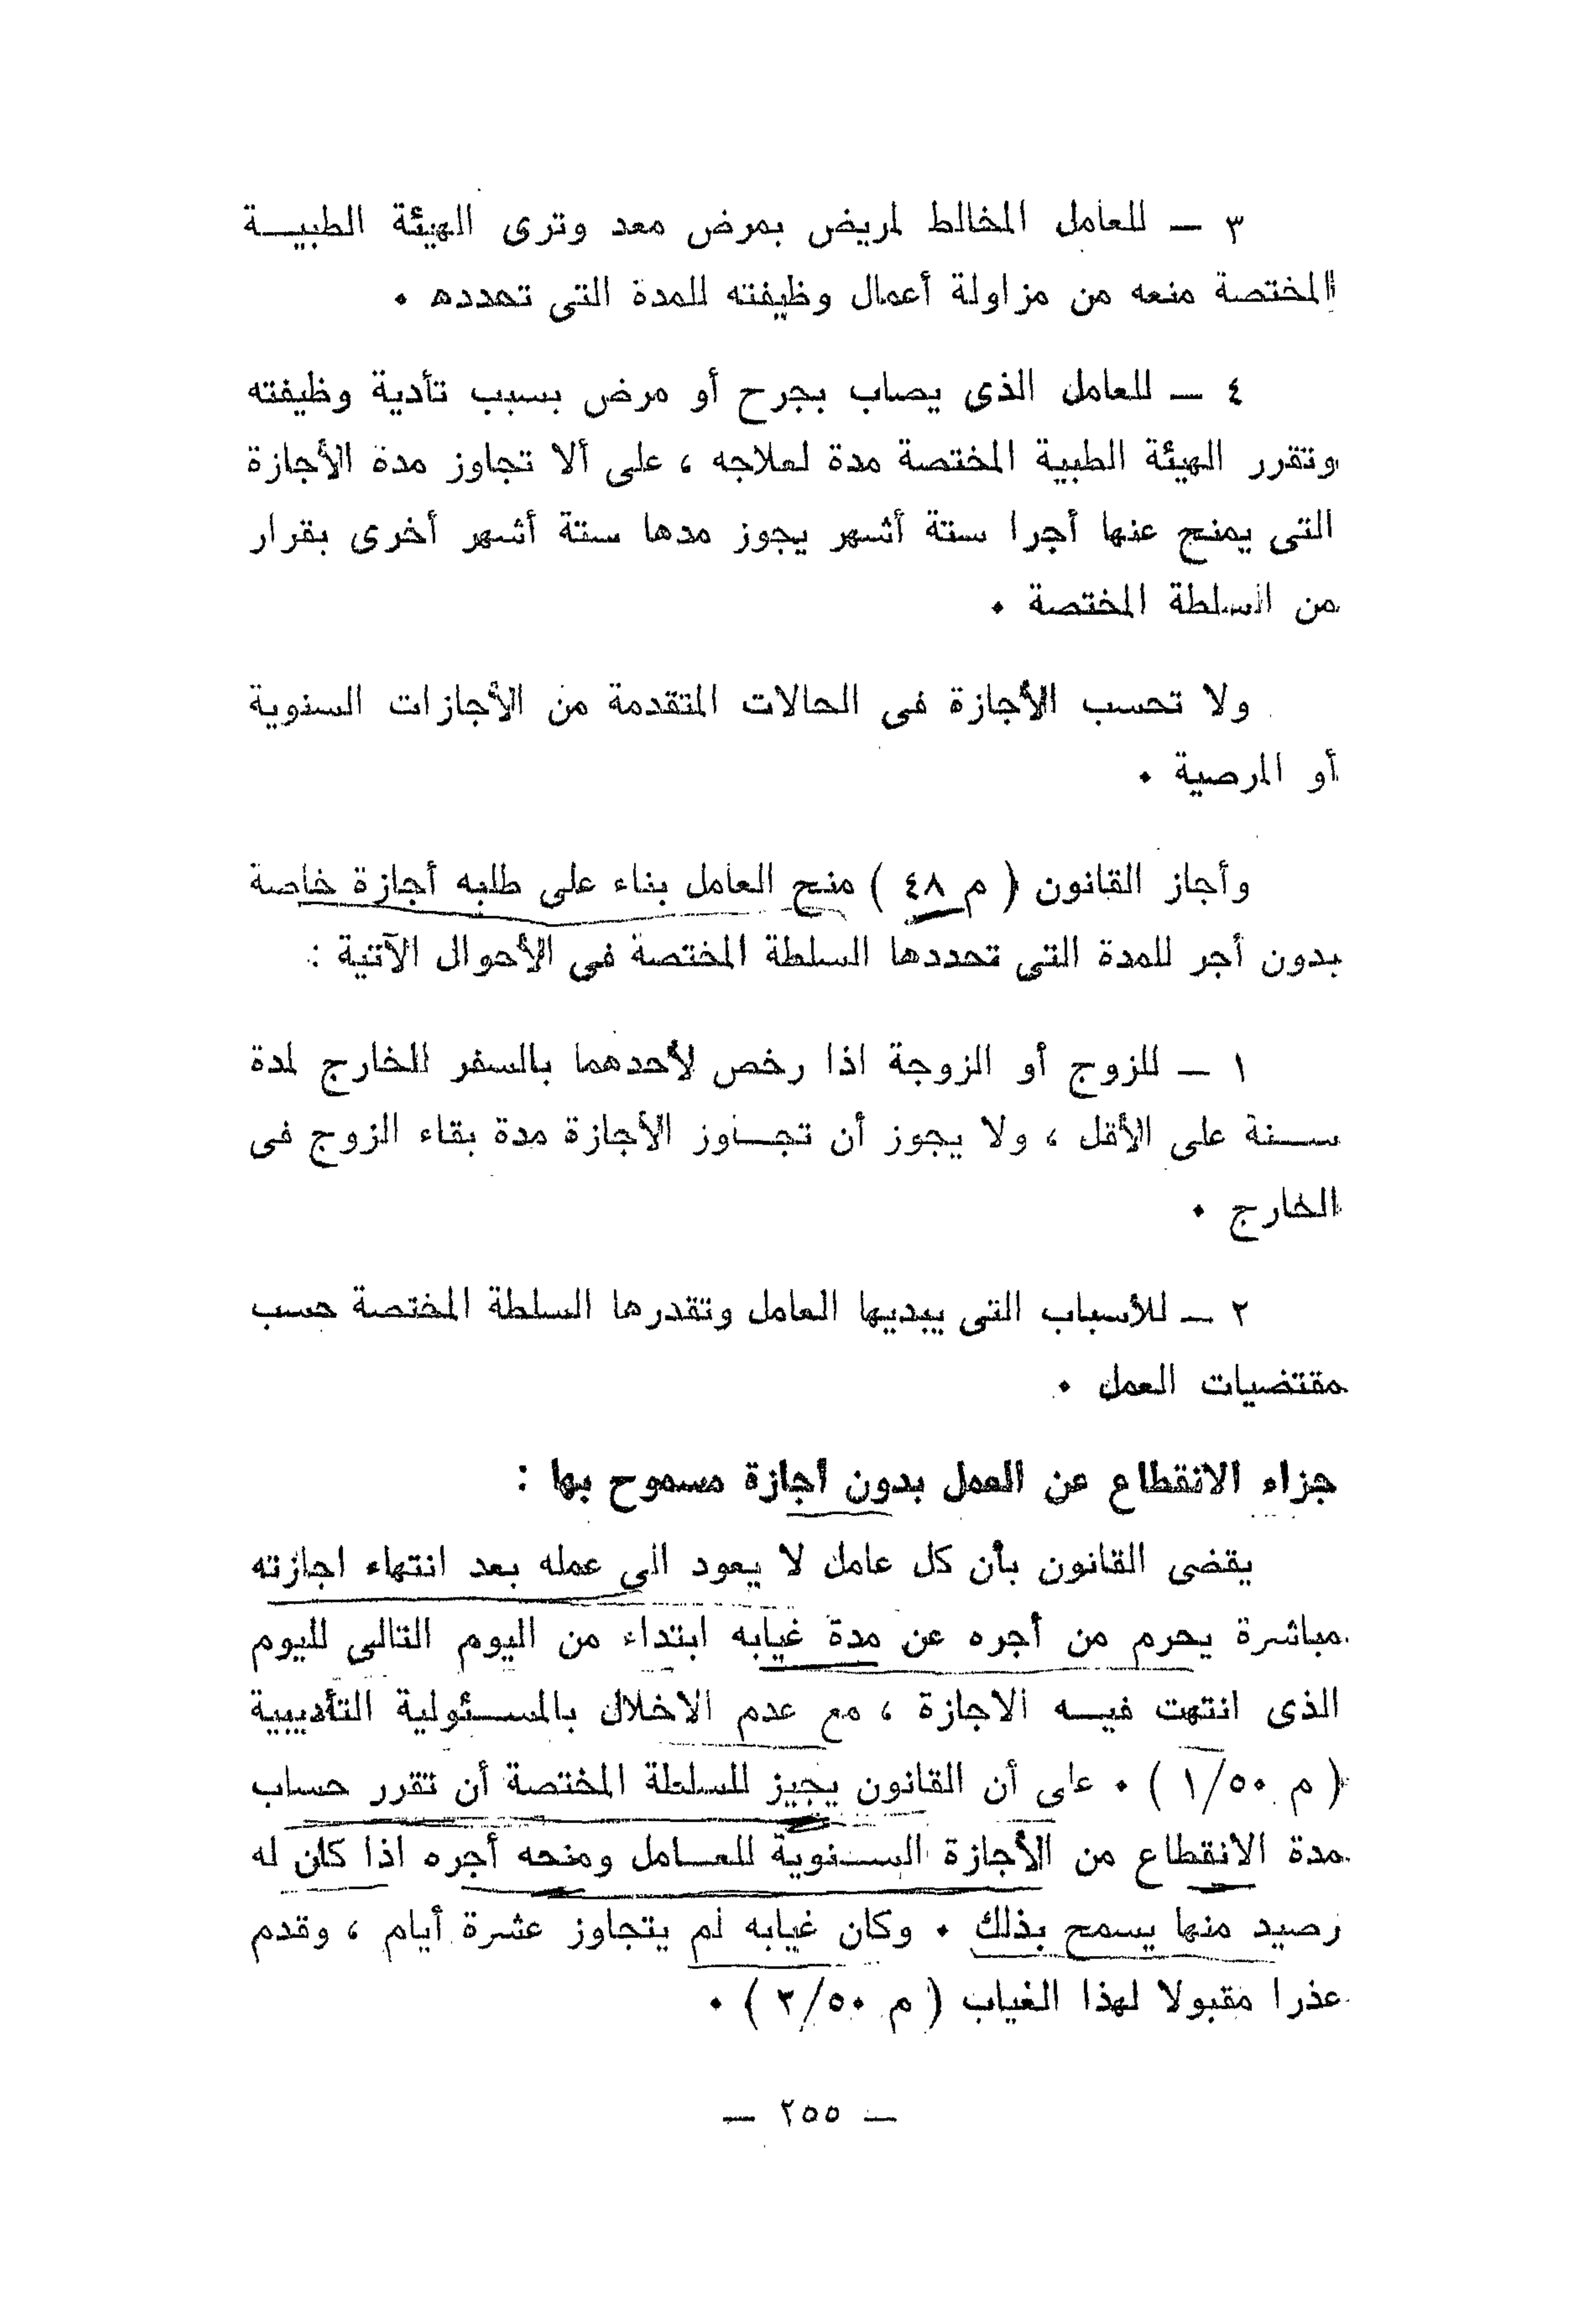 ٣ — للعامل المخالط لمريض بمرض معد وترى الهيئة الطبيـــة
المختصة منعه من مزاولة أعمال وظيفته للمدة التى تحدده ٠
٤ — للعامل الذى يصاب بجرح أو مرض بسبب تأدية وظيفته
وتقرر الهيئة الطبية المختصة مدة لعلاجه ، على ألا تجاوز مدة الأجازة
التى يمنح عنها أجرا ستة أشهر يجوز مدها ستة أشهر أخرى بقرار
من السلطة المختصة ٠
ولا تحسب الأجازة فى الحالات المتقدمة من الأجازات السنوية
أو المرصية ٠
وأجاز القانون ( م ٤٨ ) منح العامل بناء على طلبه أجازة خاصة
بدون أجر للمدة التى تحددها السلطة المختصة فى الأحوال الآتية :
١ — للزوج أو الزوجة اذا رخص لأحدهما بالسفر للخارج لمدة
ســـنة على الأقل ، ولا يجوز أن تجـــاوز الأجازة مدة بقاء الزوج فى
الخارج ٠
٢ — للأسباب التى يبديها العامل وتقدرها السلطة المختصة حسب
مقتضيات العمل ٠
جزاء الانقطاع عن العمل بدون أجازة مسموح بها :
يقضى القانون بأن كل عامل لا يعود الى عمله بعد انتهاء اجازته
مباشرة يحرم من أجره عن مدة غيابه ابتداء من اليوم التالى لليوم
الذى انتهت فيـــه الاجازة ، مع عدم الاخلال بالمســـئولية التأديبية
( م ١/٥٠ ) ٠ على أن القانون يجيز للسلطة المختصة أن تقرر حساب
مدة الانقطاع من الأجازة الســـنوية للعـــامل ومنحه أجره اذا كان له
رصيد منها يسمح بذلك ٠ وكان غيابه لم يتجاوز عشرة أيام ، وقدم
عذرا مقبولا لهذا الغياب ( م ٢/٥٠ ) ٠
— ٢٥٥ —